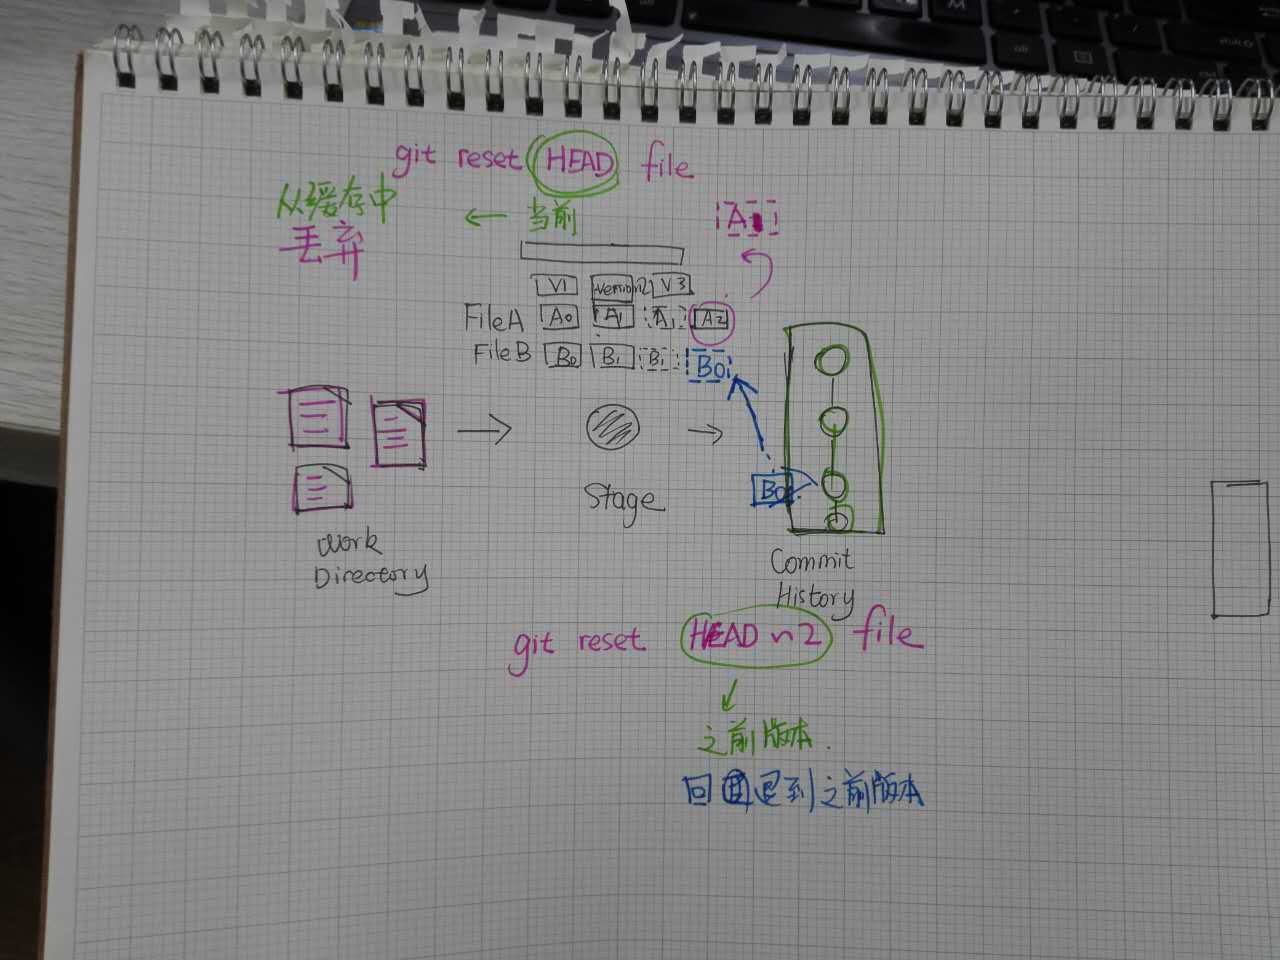 git reset HEAD file
从缓存中 ← 当前
丢弃
A1
V1 version2 V3
File A A0 A1 A1 A2
File B B0 B1 B1 B0
B0
Stage
Work
Directory
Commit
History
git reset HEAD~2 file
之前版本.
回退到之前版本